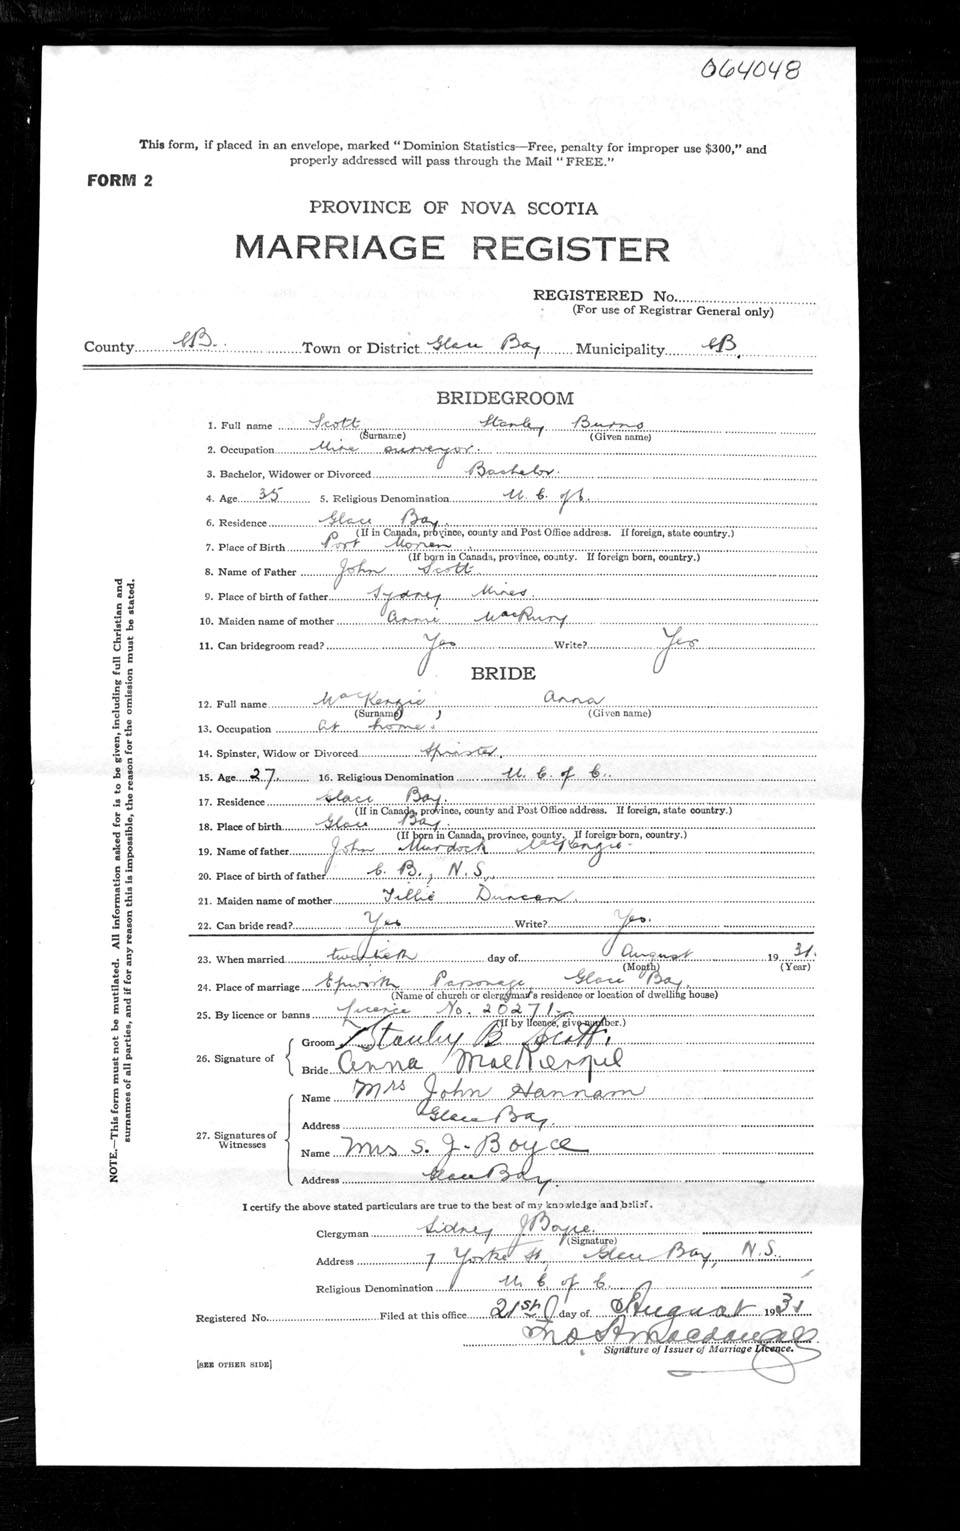 064048
This form, if placed in an envelope, marked "Dominion Statistics—Free, penalty for improper use $300," and
properly addressed will pass through the Mail "FREE."
FORM 2
PROVINCE OF NOVA SCOTIA
MARRIAGE REGISTER
REGISTERED No.
(For use of Registrar General only)
County CB. Town or District Glace Bay Municipality CB.
BRIDEGROOM
1. Full name Scott Stanley Burns
(Surname) (Given name)
2. Occupation Mine surveyor.
3. Bachelor, Widower or Divorced Bachelor.
4. Age 35 5. Religious Denomination U. C. of C.
6. Residence Glace Bay.
(If in Canada, province, county and Post Office address. If foreign, state country.)
7. Place of Birth Port Morien
(If born in Canada, province, county. If foreign born, country.)
8. Name of Father John Scott
9. Place of birth of father Sydney Mines.
10. Maiden name of mother Annie MacRury
11. Can bridegroom read? Yes Write? Yes
BRIDE
12. Full name MacKenzie Anna
(Surname) (Given name)
13. Occupation At home.
14. Spinster, Widow or Divorced Spinster.
15. Age 27. 16. Religious Denomination U. C. of C.
17. Residence Glace Bay.
(If in Canada, province, county and Post Office address. If foreign, state country.)
18. Place of birth Glace Bay.
(If born in Canada, province, county. If foreign born, country.)
19. Name of father John Murdock MacKenzie.
20. Place of birth of father C. B., N.S.
21. Maiden name of mother Tillie Duncan.
22. Can bride read? Yes Write? Yes.
23. When married twentieth day of August 1931.
(Month) (Year)
24. Place of marriage Epworth Parsonage, Glace Bay.
(Name of church or clergyman's residence or location of dwelling house)
25. By licence or banns Licence No. 20271.
(If by licence, give number.)
26. Signature of
Groom Stanley B Scott.
Bride Anna MacKenzie
27. Signatures of Witnesses
Name Mrs John Hannam
Address Glace Bay.
Name Mrs S. J. Boyce
Address Glace Bay.
I certify the above stated particulars are true to the best of my knowledge and belief.
Clergyman Sidney J Boyce.
(Signature)
Address 7 Yorke St., Glace Bay, N.S.
Religious Denomination U. C. of C.
Registered No. Filed at this office 21st day of August 1931
Signature of Issuer of Marriage Licence.
[SEE OTHER SIDE]
NOTE.—This form must not be mutilated. All information asked for is to be given, including full Christian and
surnames of all parties, and if for any reason this is impossible, the reason for the omission must be stated.